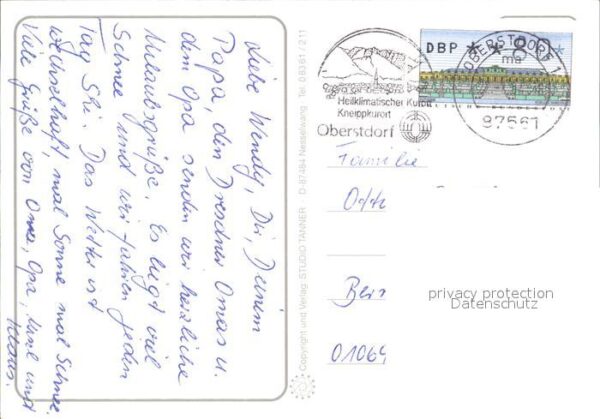 Liebe Wendy, Dir, Deinem
Papa, den Dresdner Omas u.
dem Opa senden wir herzliche
Urlaubsgrüße. Es liegt viel
Schnee und wir fahren jeden
Tag Ski. Das Wetter ist
wechselhaft, mal Sonne mal Schnee.
Viele Grüße von Oma, Opa, und
Klaus.
© Copyright und Verlag: STUDIO TANNER D-87484 Nesselwang Tel. 08361 / 211
Heilklimatischer Kurort
Kneippkurort
Oberstdorf
DBP 80
OBERSTDORF 1
87561
Familie
Otto
01069
privacy protection
Datenschutz